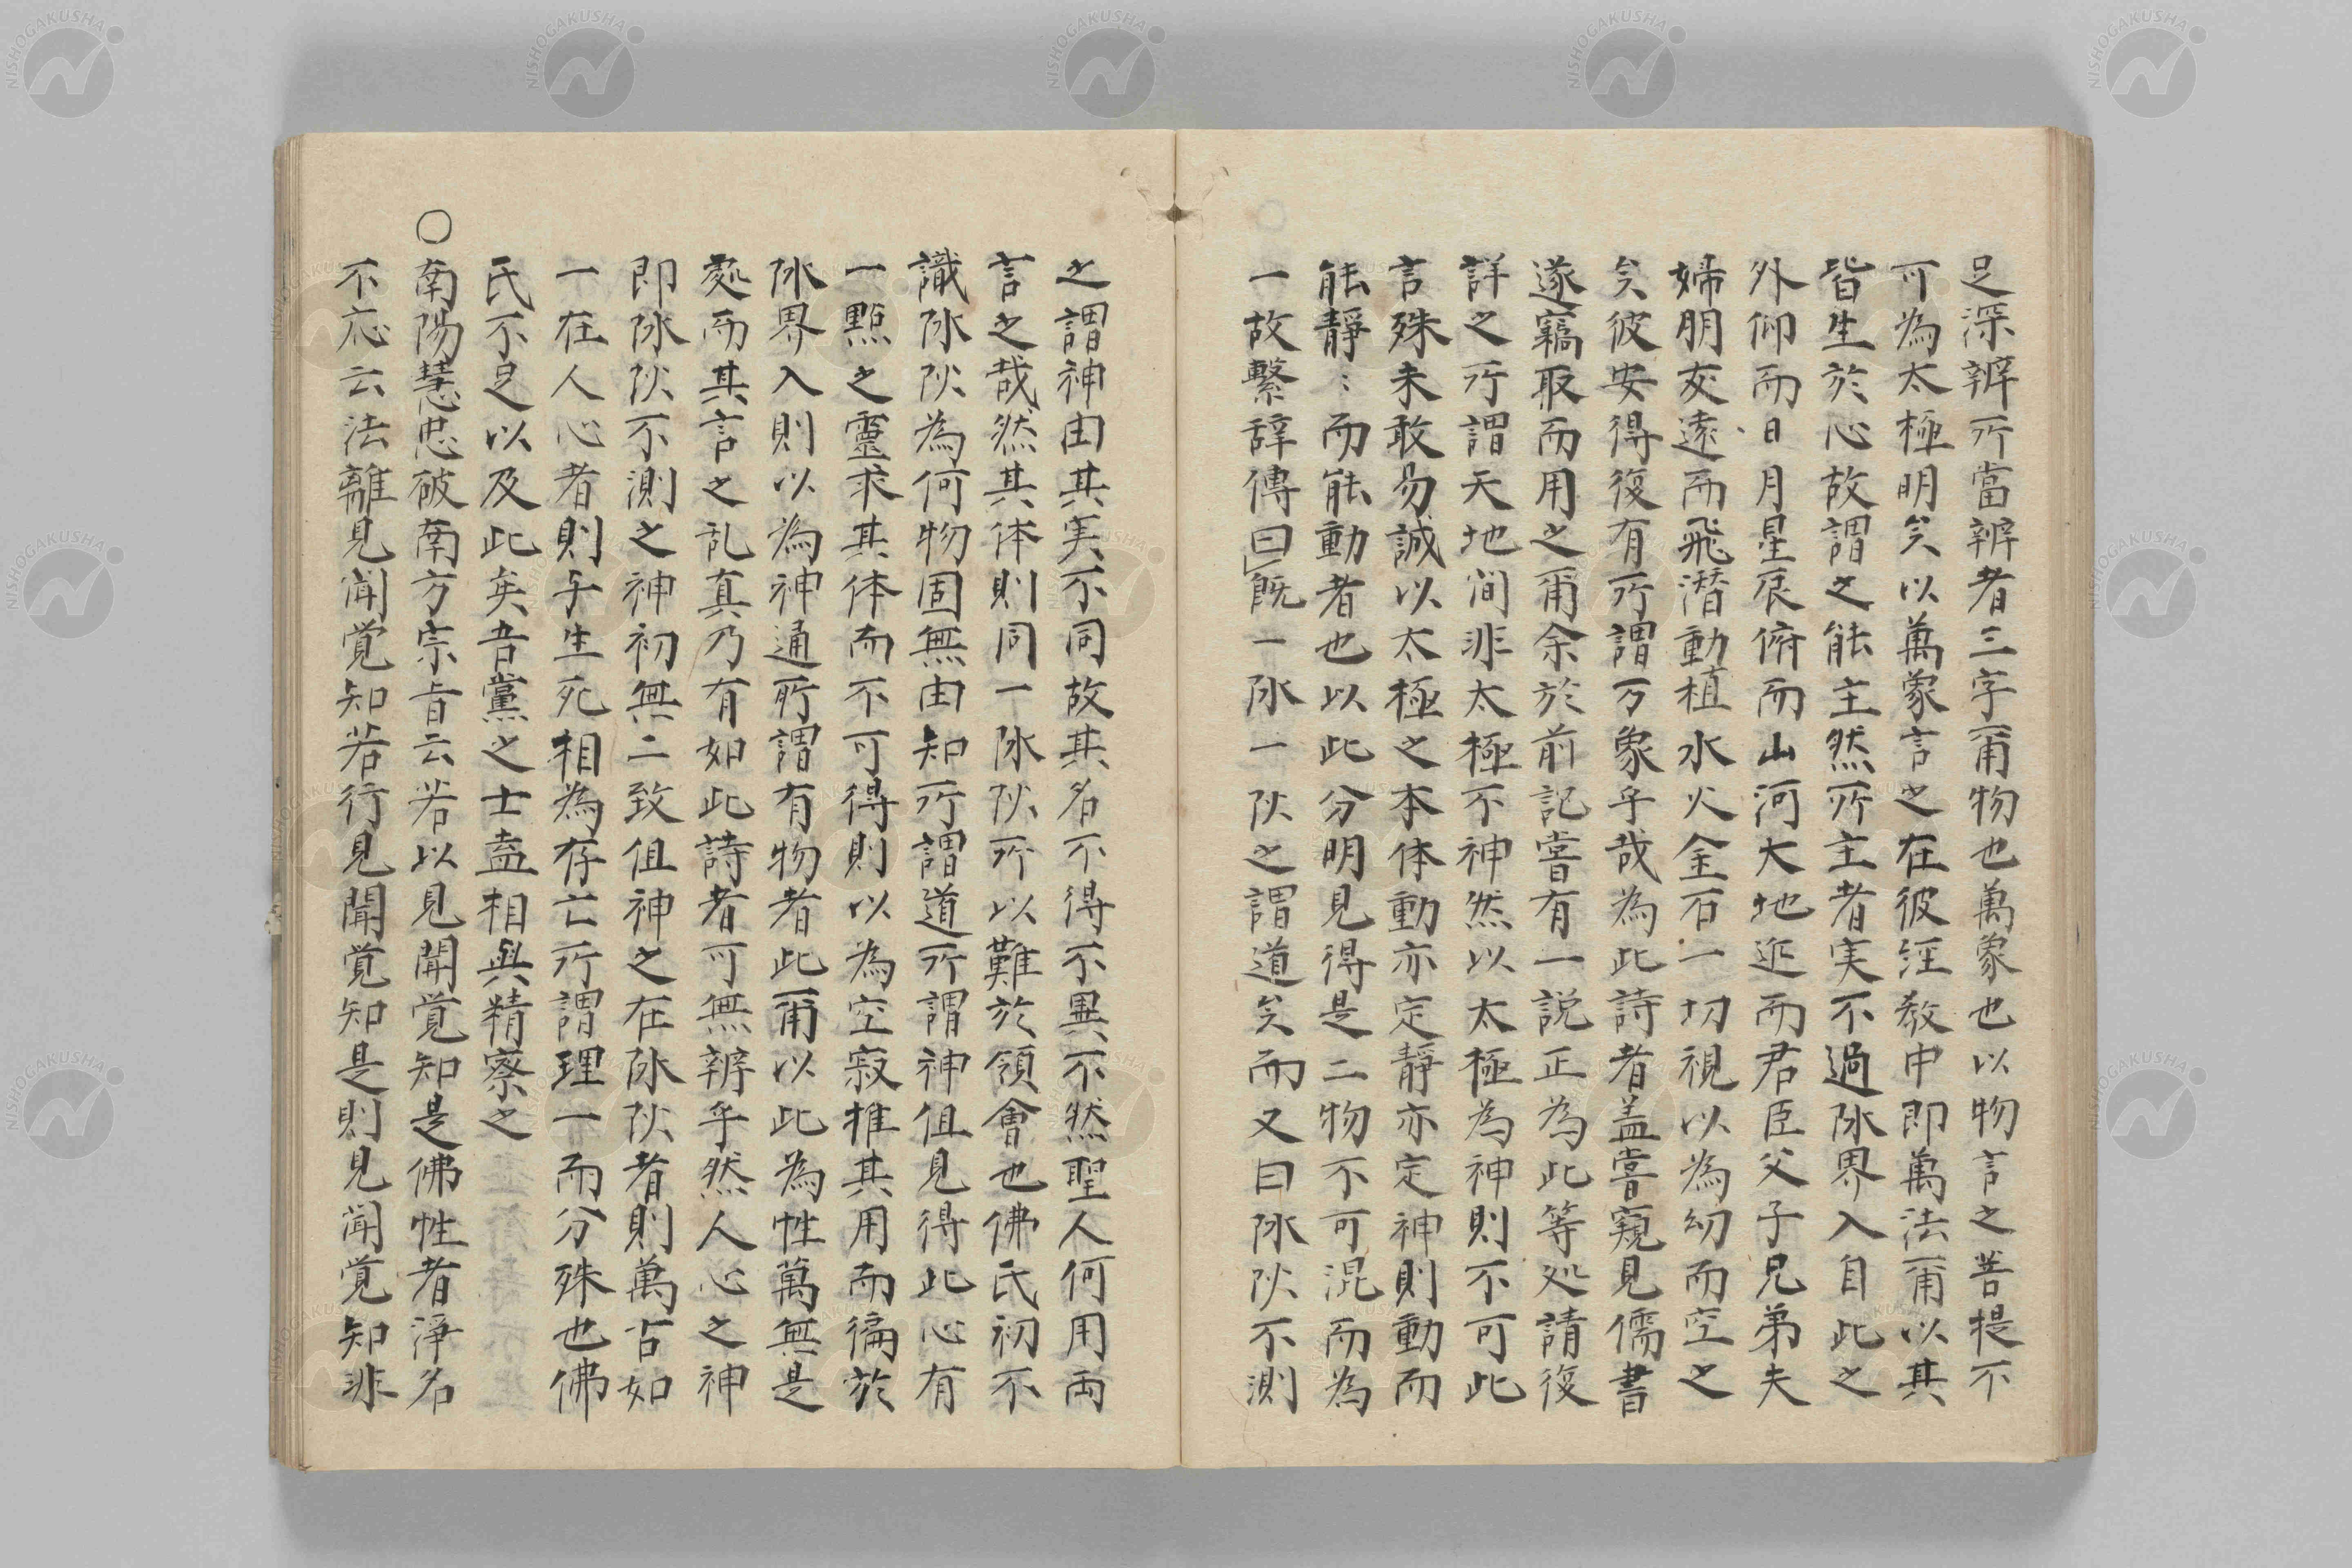 足深辨所當辨者三字爾物也萬象也以物言之菩提不
可為太極明矣以萬象言之在彼経教中即萬法爾以其
皆生於心故謂之能主然所主者実不過阥界入自此之
外仰而日月星辰俯而山河大地近而君臣父子兄弟夫
婦朋友遠而飛潜動植水火金石一切視以為幻而空之
矣彼安得復有所謂万象乎哉為此詩者盖嘗窺見儒書
遂竊取而用之爾余於前記嘗有一説正為此等処請復
詳之所謂天地间非太極不神然以太極為神則不可此
言殊未敢易誠以太極之本体動亦定静亦定神則動而
能靜〻而能動者也以此分明見得是二物不可混而為
一故繫辞傳曰既一阥一阦之謂道矣而又曰阥阦不測
之謂神由其実不同故其名不得不異不然聖人何用両
言之哉然其体則同一阥阦所以難於領會也佛氏初不
識阥阦為何物固無由知所謂道所謂神但見得此心有
一點之靈求其体而不可得則以為空寂推其用而徧於
阥界入則以為神通所謂有物者此爾以此為性萬無是
處而其言之乱真乃有如此詩者可無辨乎然人心之神
即阥阦不測之神初無二致但神之在阥阦者則萬古如
一在人心者則与生死相為存亡所謂理一而分殊也佛
氏不足以及此矣吾黨之士盍相與精察之
○南陽慧忠破南方宗旨云若以見聞覚知是佛性者淨名
不応云法離見聞覚知若行見聞覚知是則見聞覚知非
NISHOGAKUSHA